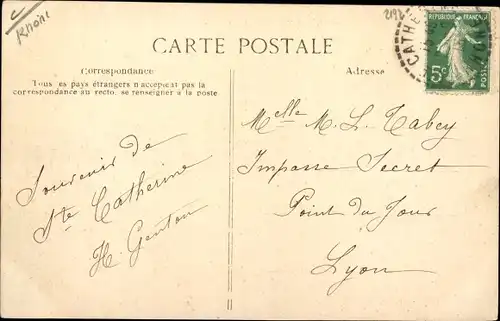 Rhône
2192
CARTE POSTALE
Correspondance
Tous les pays étrangers n'acceptent pas la
correspondance au recto, se renseigner à la poste
Souvenir de
Ste Catherine
H. Genton
Adresse
REPUBLIQUE FRANÇAISE
5c
POSTES
CATHE
Melle M. L. Tabey
Impasse Secret
Point du Jour
Lyon